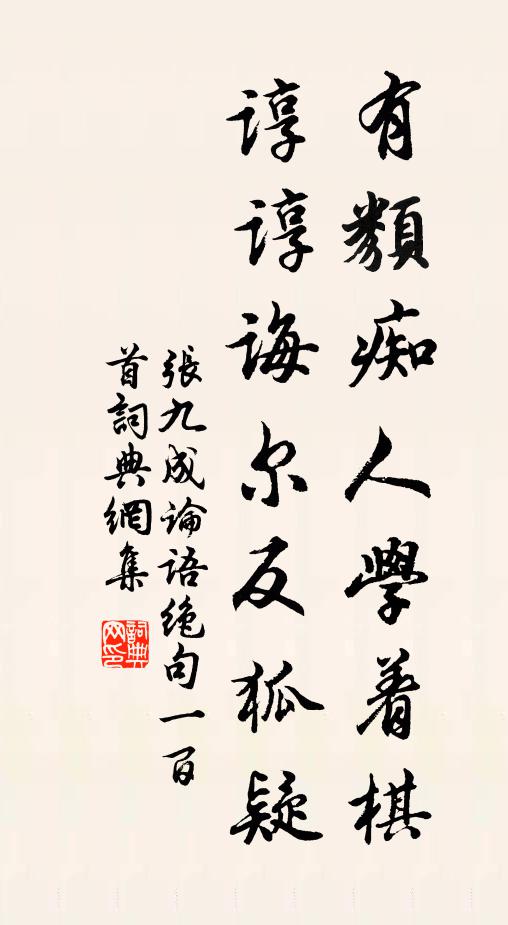 有類痴人學着棋
諄諄誨尔反狐疑
張九成論语絶句一百
首詞典網集
詞典
网印